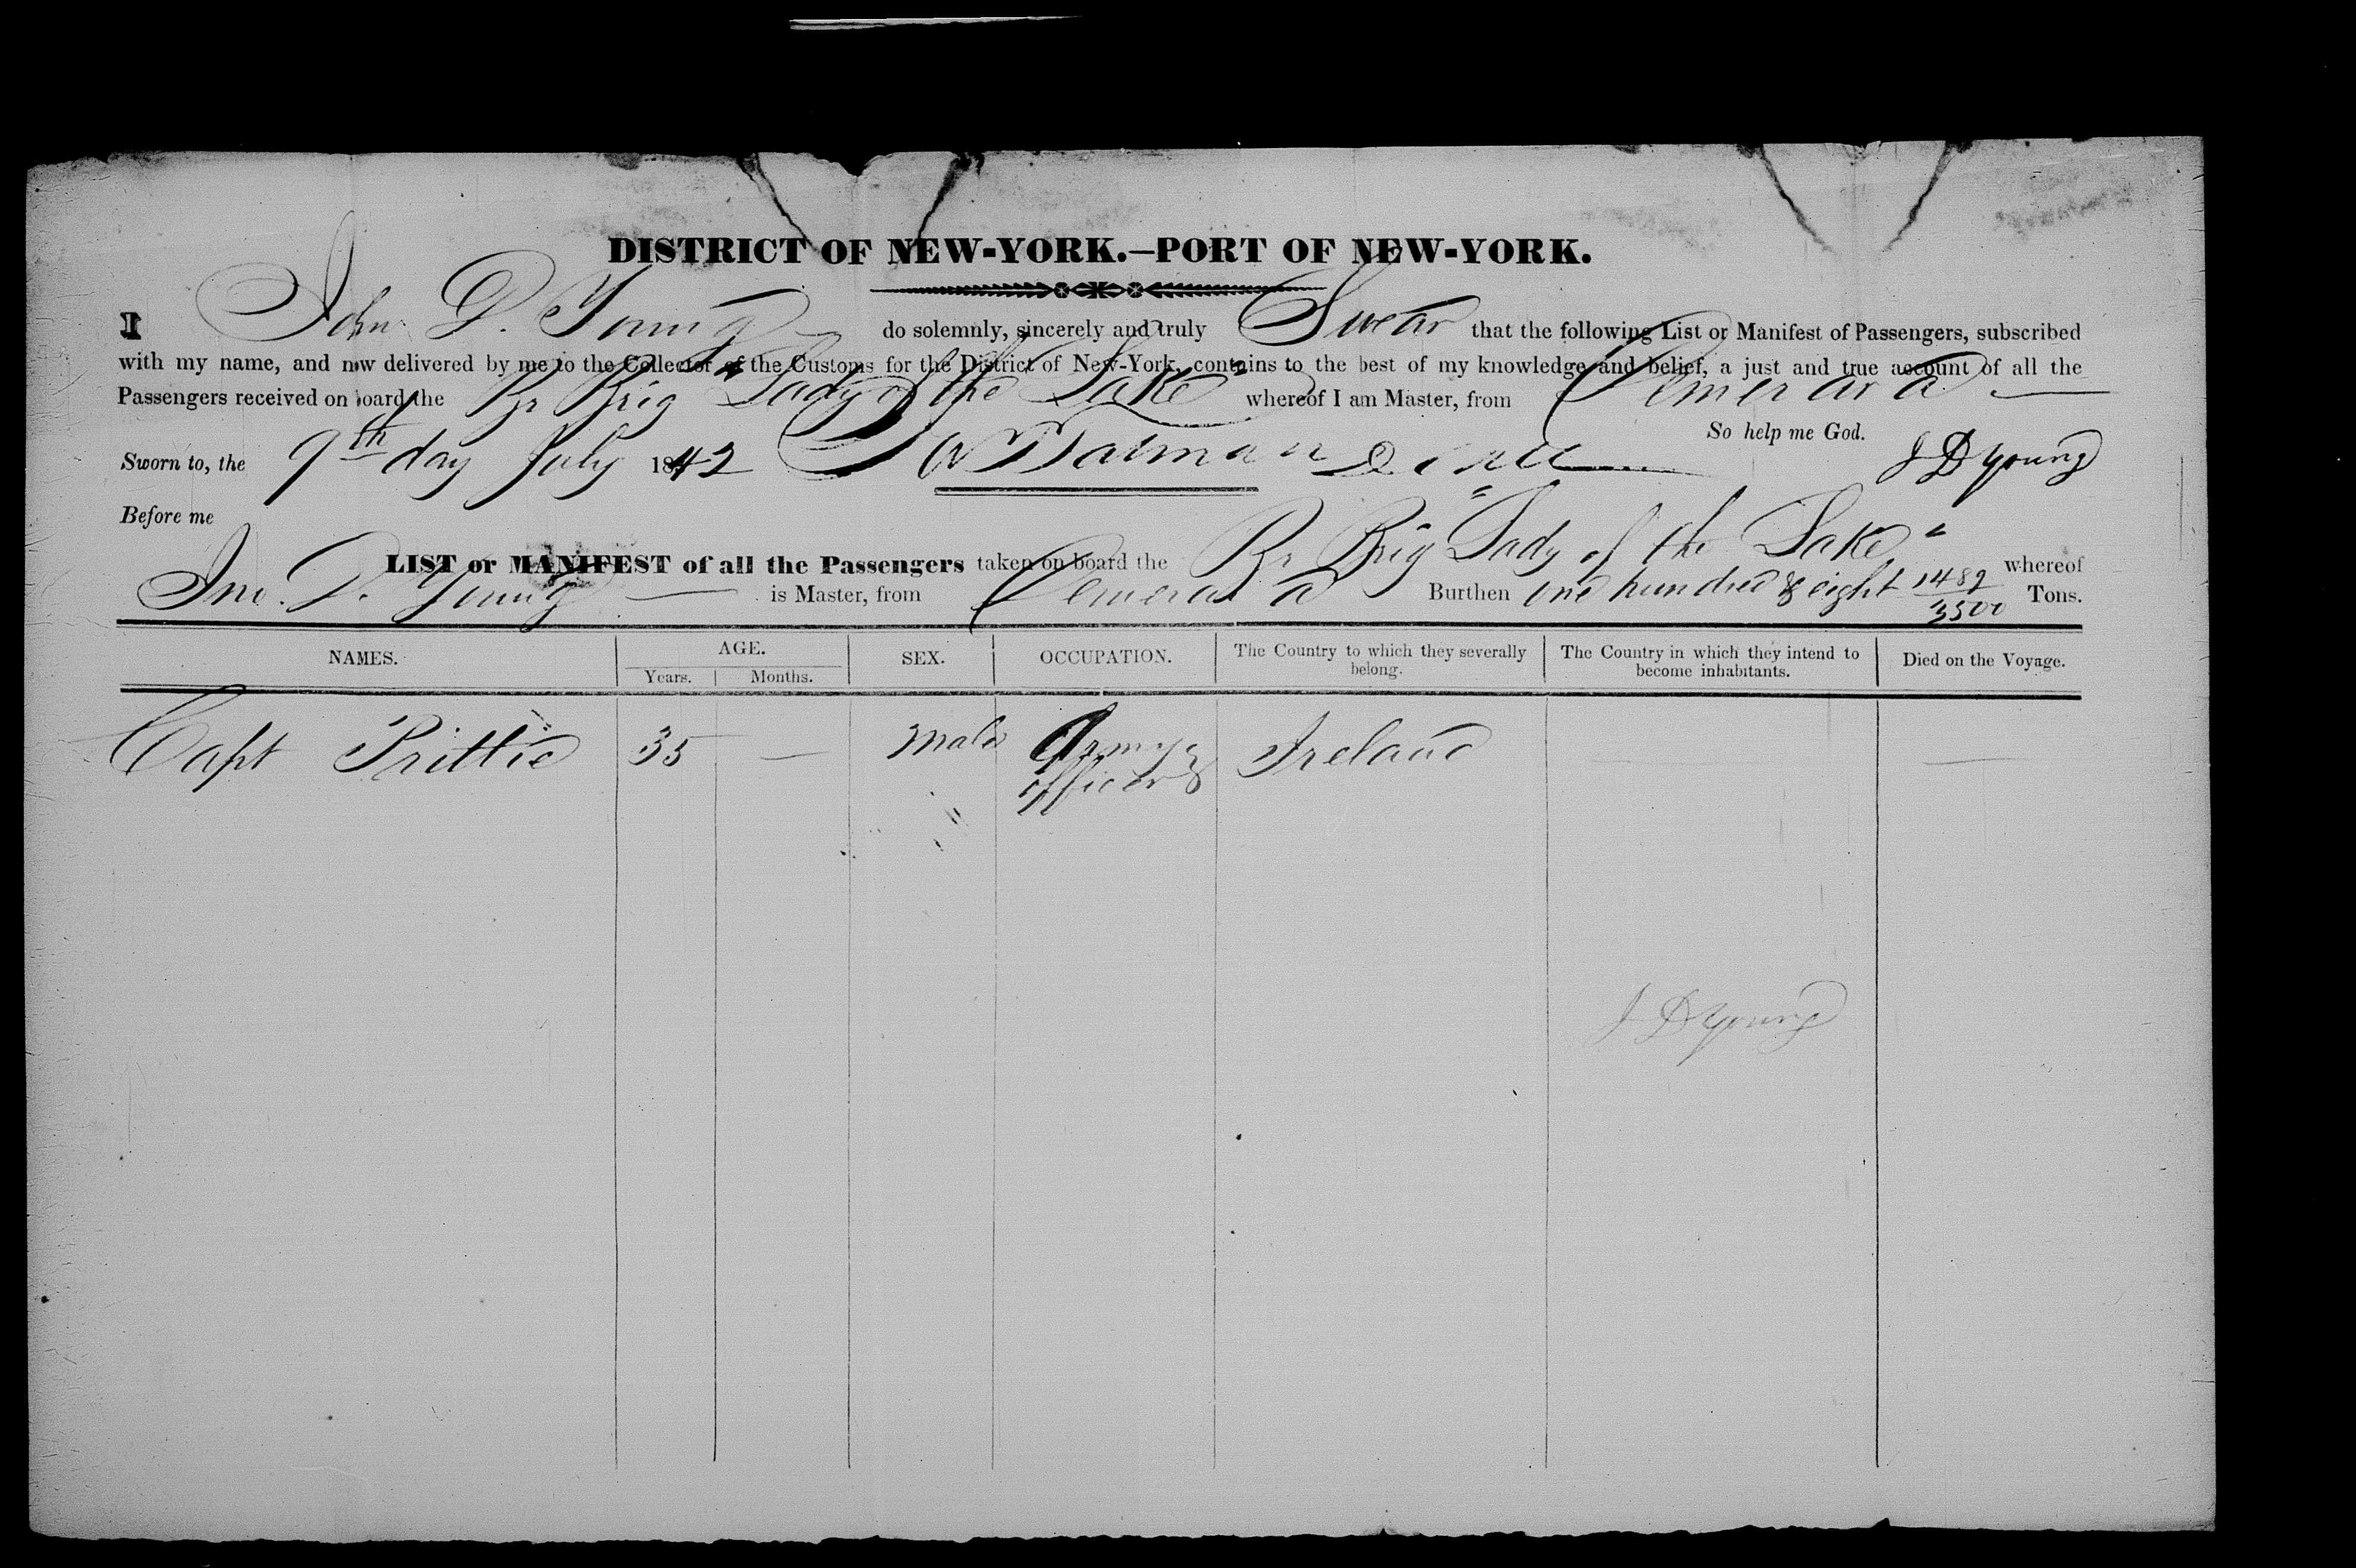 DISTRICT OF NEW-YORK.—PORT OF NEW-YORK.
I John D. Young do solemnly, sincerely and truly Swear that the following List or Manifest of Passengers, subscribed
with my name, and now delivered by me to the Collector of the Customs for the District of New-York, contains to the best of my knowledge and belief, a just and true account of all the
Passengers received on board the Br Brig "Lady of the Lake" whereof I am Master, from Demerara
So help me God.
Sworn to, the 9th day July 1842 J D Young
Before me
LIST or MANIFEST of all the Passengers taken on board the Br Brig "Lady of the Lake" whereof
Jno. D. Young is Master, from Demerara Burthen one hundred & eight 1482/3500 Tons.
NAMES. AGE. SEX. OCCUPATION. The Country to which they severally belong. The Country in which they intend to become inhabitants. Died on the Voyage.
Years. Months.
Capt Prittie 35 — male Army officer Ireland — —
J D Young